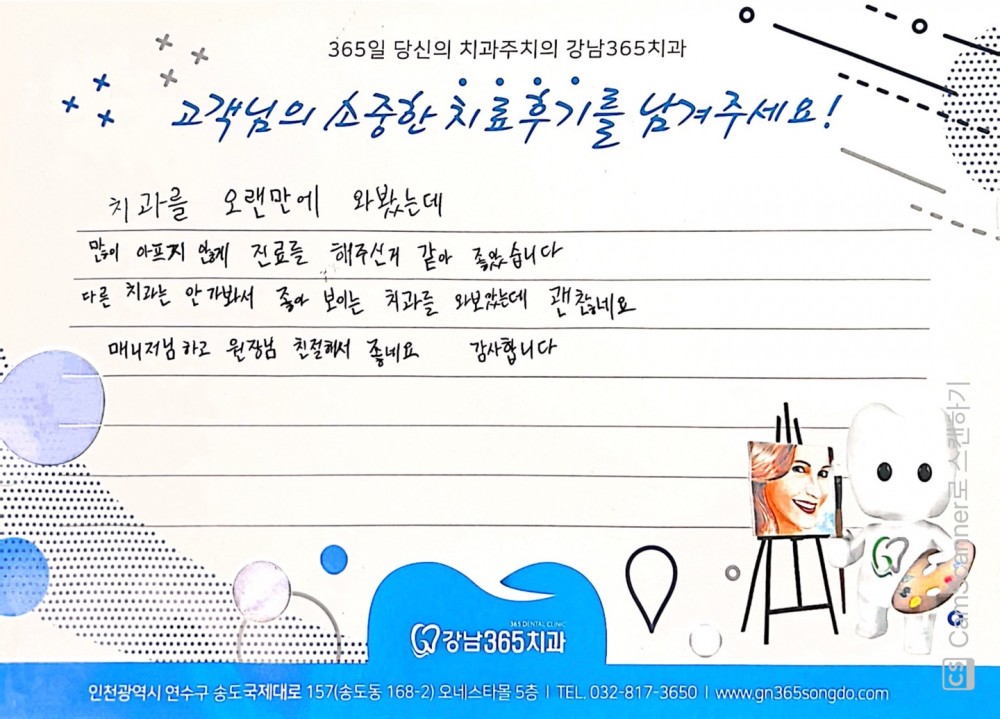 365일 당신의 치과주치의 강남365치과
고객님의 소중한 치료후기를 남겨주세요!
치과를 오랜만에 와봤는데
많이 아프지 않게 진료를 해주신거 같아 좋았습니다
다른 치과는 안가봐서 좋아 보이는 치과를 와보았는데 괜찮네요
매니저님하고 원장님 친절해서 좋네요 감사합니다
365 DENTAL CLINIC
강남365치과
인천광역시 연수구 송도국제대로 157(송도동 168-2) 오네스타몰 5층 | TEL. 032-817-3650 | www.gn365songdo.com
CS CamScanner로 스캔하기